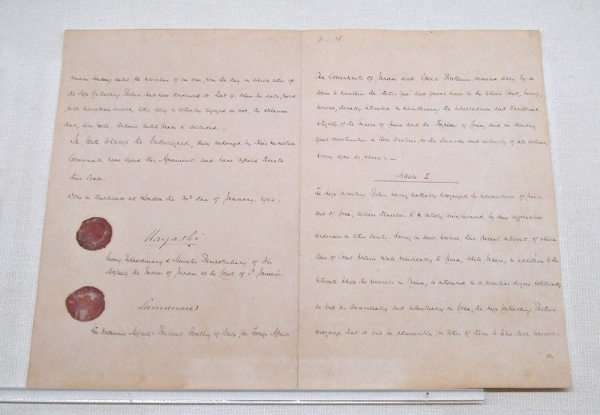 remain binding until the expiration of one year from the day on which either of
the High Contracting Parties shall have denounced it. But if, when the date fixed
for its expiration arrives, either ally is actually engaged in war, the alliance
shall, ipso facto, continue until peace is concluded.
In faith whereof the Undersigned, duly authorized by their respective
Governments, have signed this Agreement and have affixed thereto
their Seals.
Done in duplicate at London the 30th day of January, 1902.
Hayashi
Envoy Extraordinary & Minister Plenipotentiary of His
Majesty the Emperor of Japan at the Court of St James's
Lansdowne
His Britannic Majesty's Principal Secretary of State for Foreign Affairs
The Governments of Japan and Great Britain, actuated solely by a
desire to maintain the status quo and general peace in the Extreme East, being
moreover specially interested in maintaining the independence and territorial
integrity of the Empire of China and the Empire of Corea, and in securing
equal opportunities in those countries for the commerce and industry of all nations,
hereby agree as follows :—
Article I.
The High Contracting Parties having mutually recognized the independence of China
and of Corea, declare themselves to be entirely uninfluenced by any aggressive
tendencies in either country. Having in view, however, their special interests, of which
those of Great Britain relate principally to China, while Japan, in addition to the
interests which she possesses in China, is interested in a peculiar degree politically
as well as commercially and industrially in Corea, the High Contracting Parties
recognize that it will be admissible for either of them to take such measures